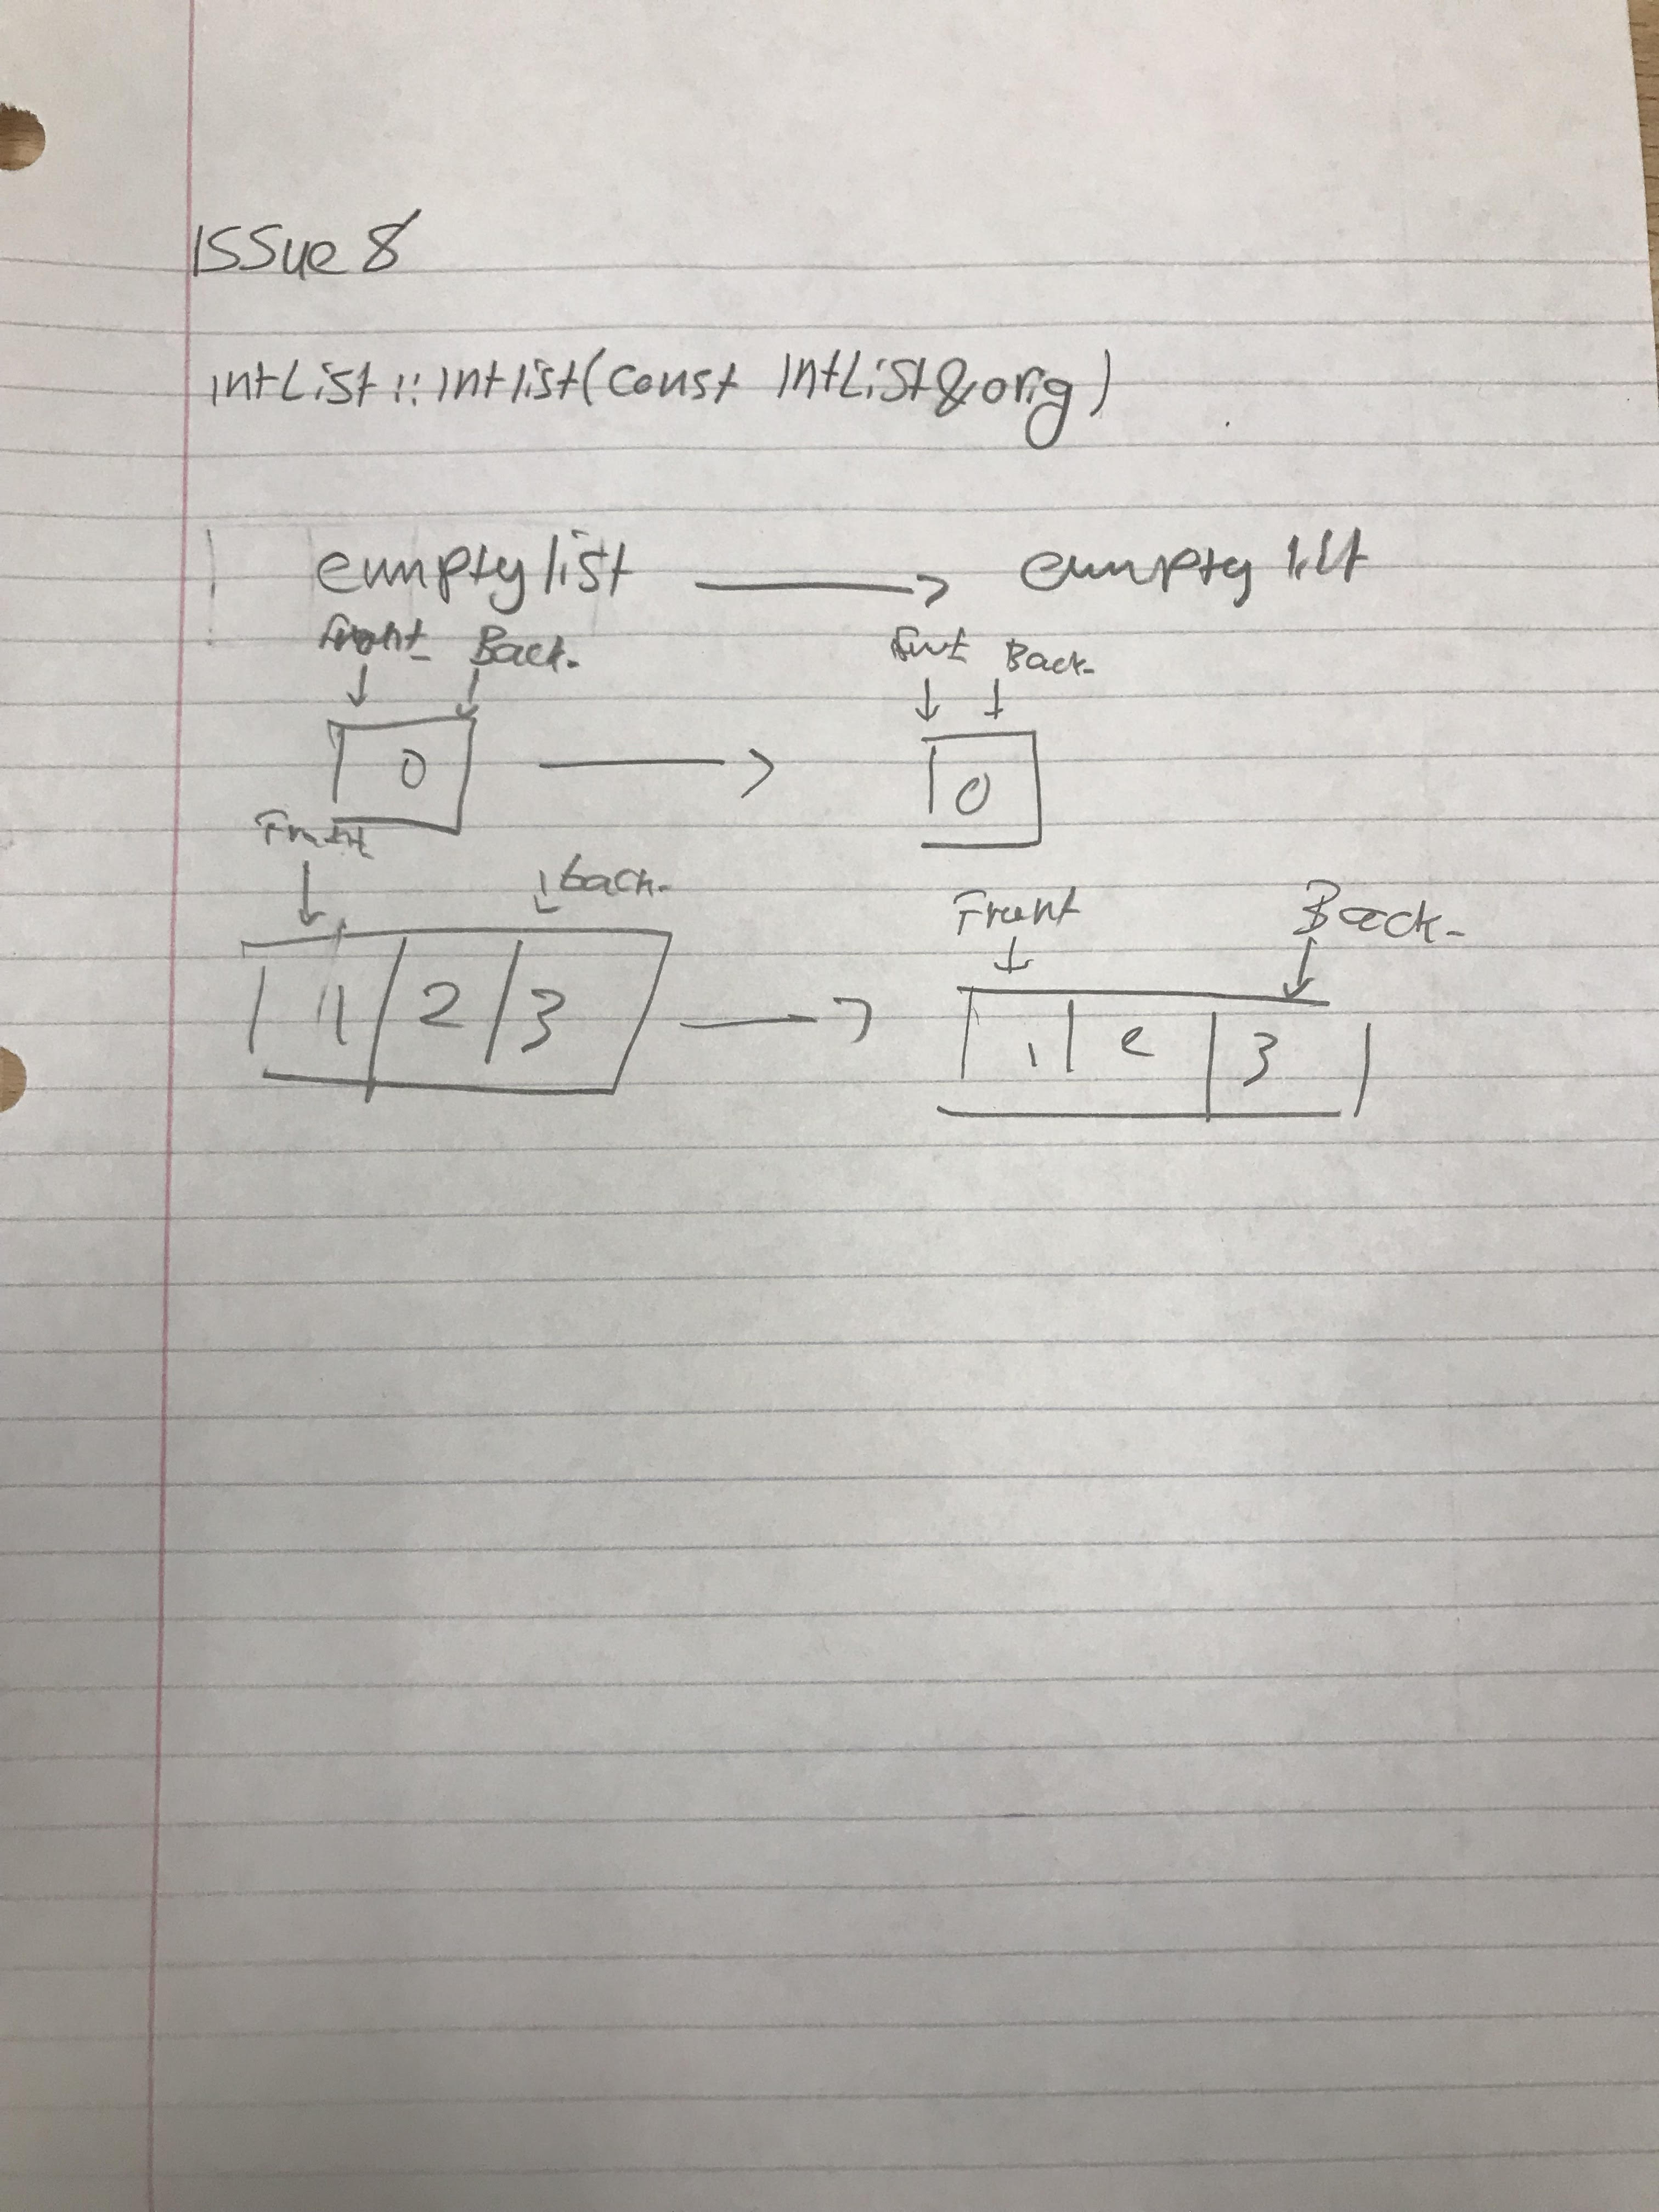 ISSue 8
intList::Intlist(const IntList&orig)
emptylist → empty list
Front Back. Frnt Back.
0 → 0
Front back.
Front Back.
1 2 3 → 1 2 3